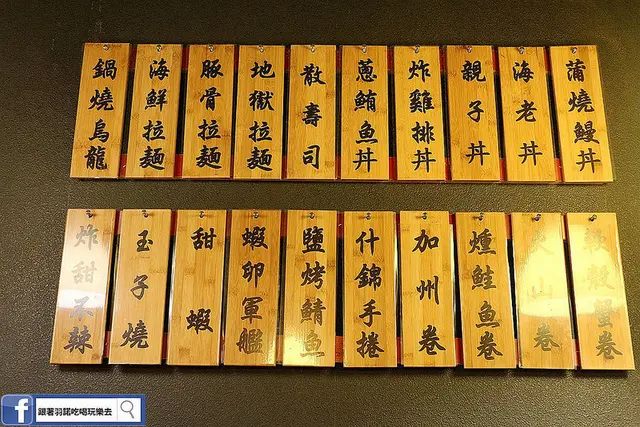 鍋燒烏龍
海鮮拉麵
豚骨拉麵
地獄拉麵
散壽司
蔥鮪魚丼
炸雞排丼
親子丼
海老丼
蒲燒鰻丼
炸甜不辣
玉子燒
甜蝦
蝦卵軍艦
鹽烤鯖魚
什錦手捲
加州卷
燻鮭魚卷
火山卷
軟殼蟹卷
跟著羽諾吃喝玩樂去